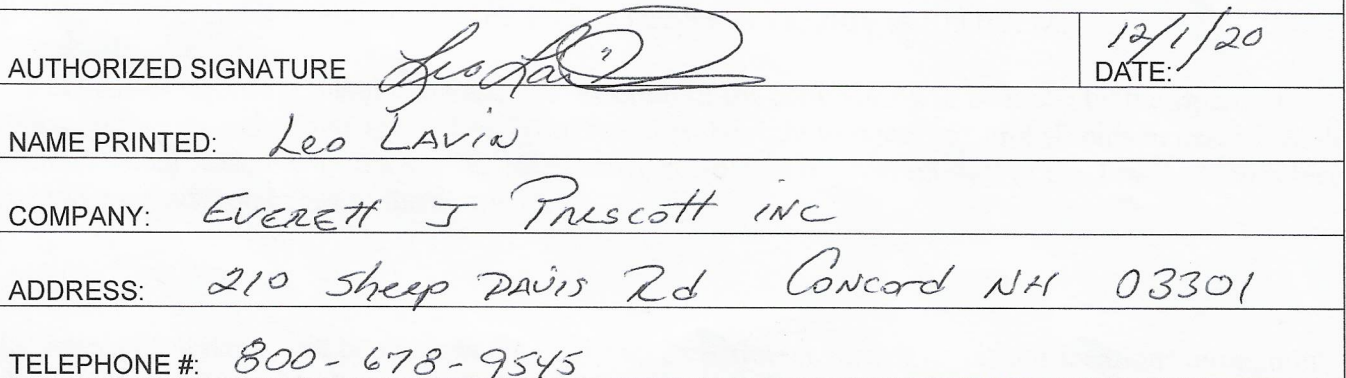 AUTHORIZED SIGNATURE Leo Lavin
12/1/20
DATE:
NAME PRINTED: Leo LAViN
COMPANY: EVERETT J PRESCOTT iNC
ADDRESS: 210 Sheep DAViS Rd CoNcord NH 03301
TELEPHONE #: 800-678-9545